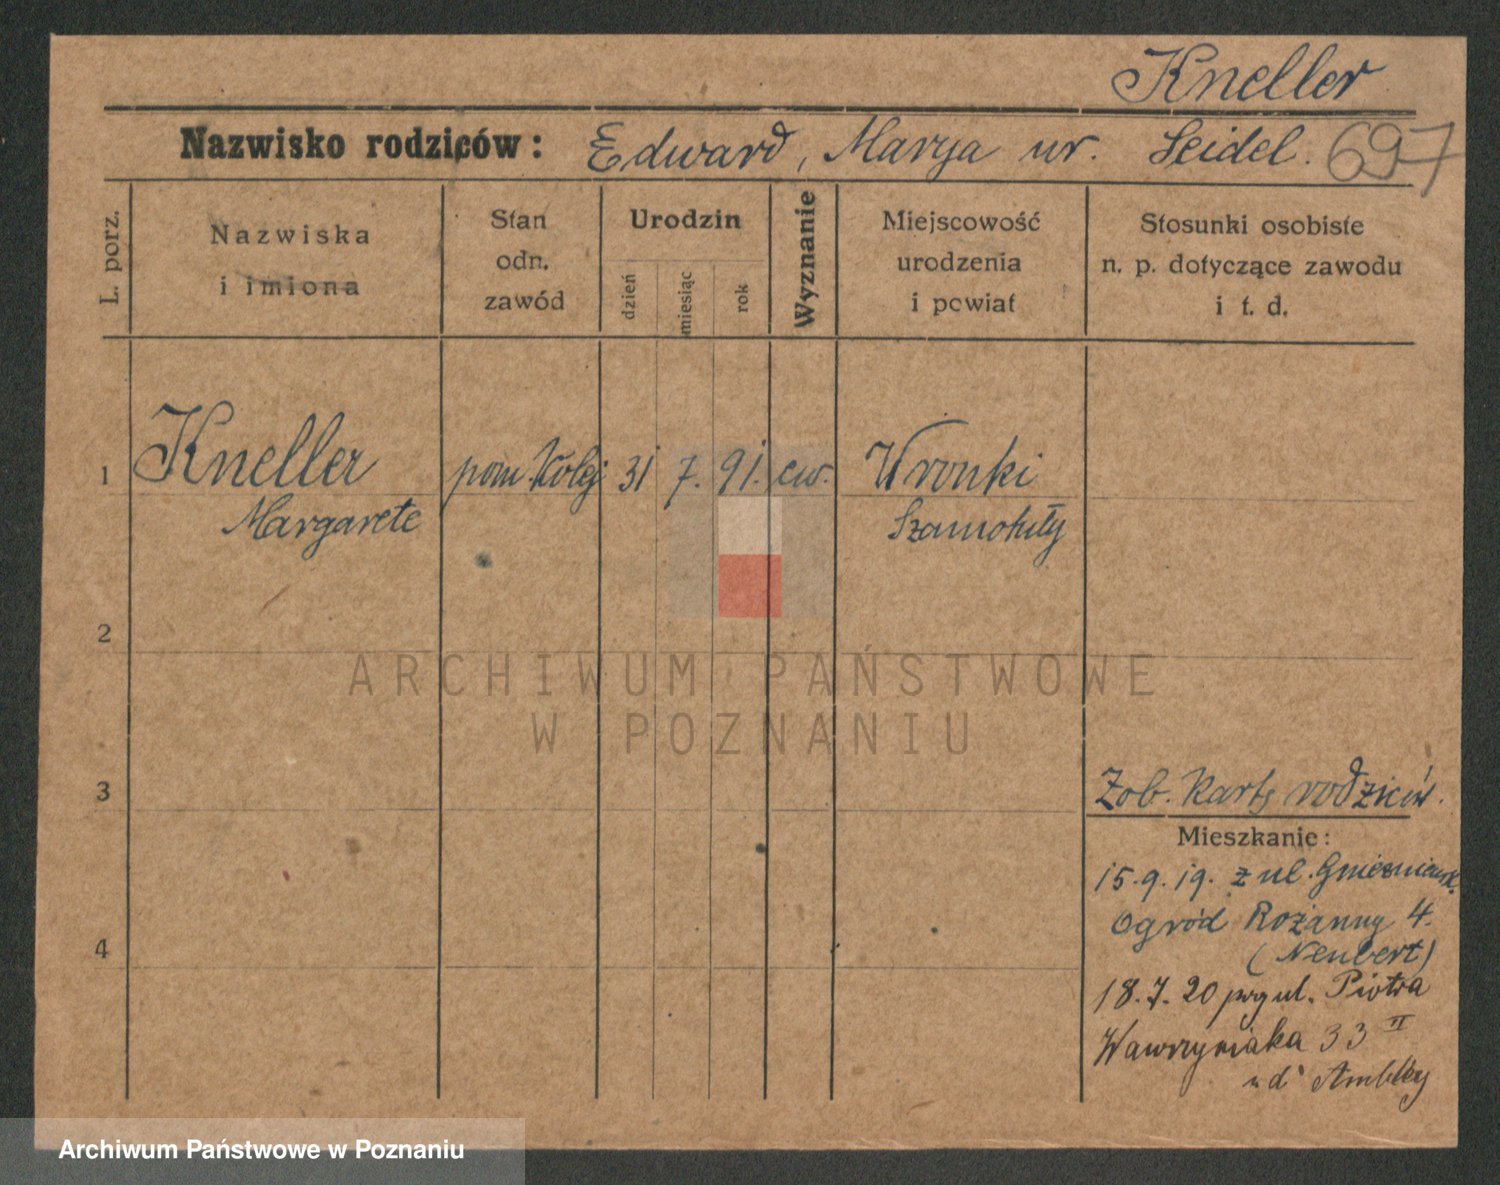 Kneller
Nazwisko rodziców: Edward, Marya ur. Seidel. 697
L. porz.
Nazwiska
i imiona
Stan
odn.
zawód
Urodzin
dzień
miesiąc
rok
Wyznanie
Miejscowość
urodzenia
i powiat
Stosunki osobiste
n. p. dotyczące zawodu
i t. d.
1 Kneller pom. Kolej 31 7. 91. ew. Wronki
Margarete Szamotuły
2
ARCHIWUM PAŃSTWOWE
W POZNANIU
3
Zob. Kartę rodziców.
Mieszkanie:
15.9.19. z ul. Gnieźnieńsk.
Ogród Rożanny 4.
(Neubert)
4
18.7.20 ul. Piotra
Wawrzyniaka 33 II
Archiwum Państwowe w Poznaniu